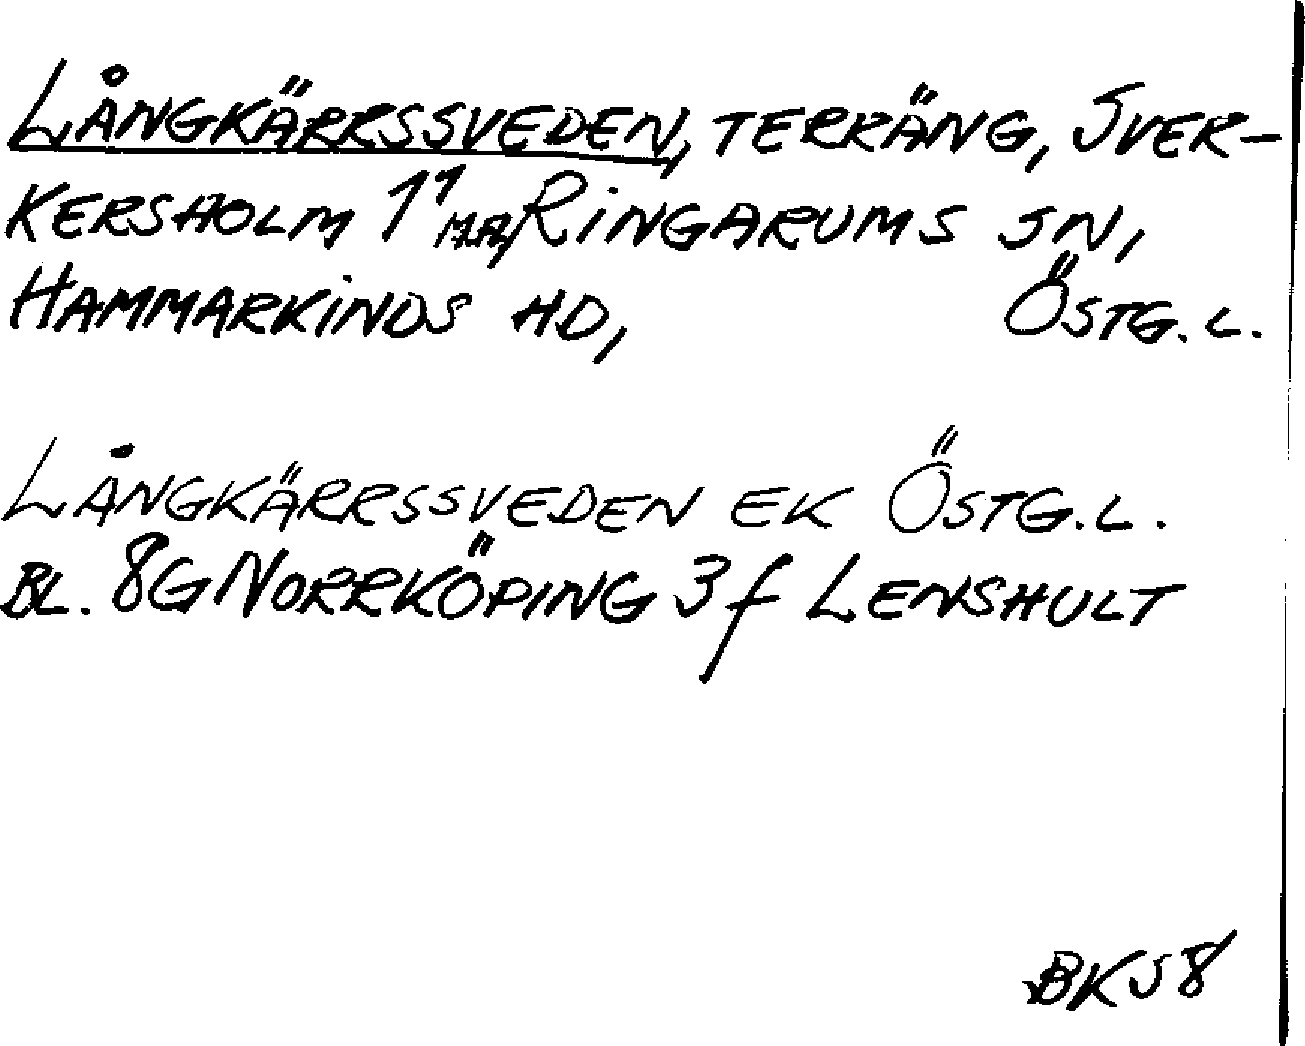 LÅNGKÄRRSSVEDEN, TERRÄNG, SVER-
KERSHOLM 1¹ M.FL, RINGARUMS SN,
HAMMARKINDS HD, ÖSTG. L.
LÅNGKÄRRSSVEDEN EK ÖSTG. L.
BL. 8G NORRKÖPING 3f LENSHULT
BKS8